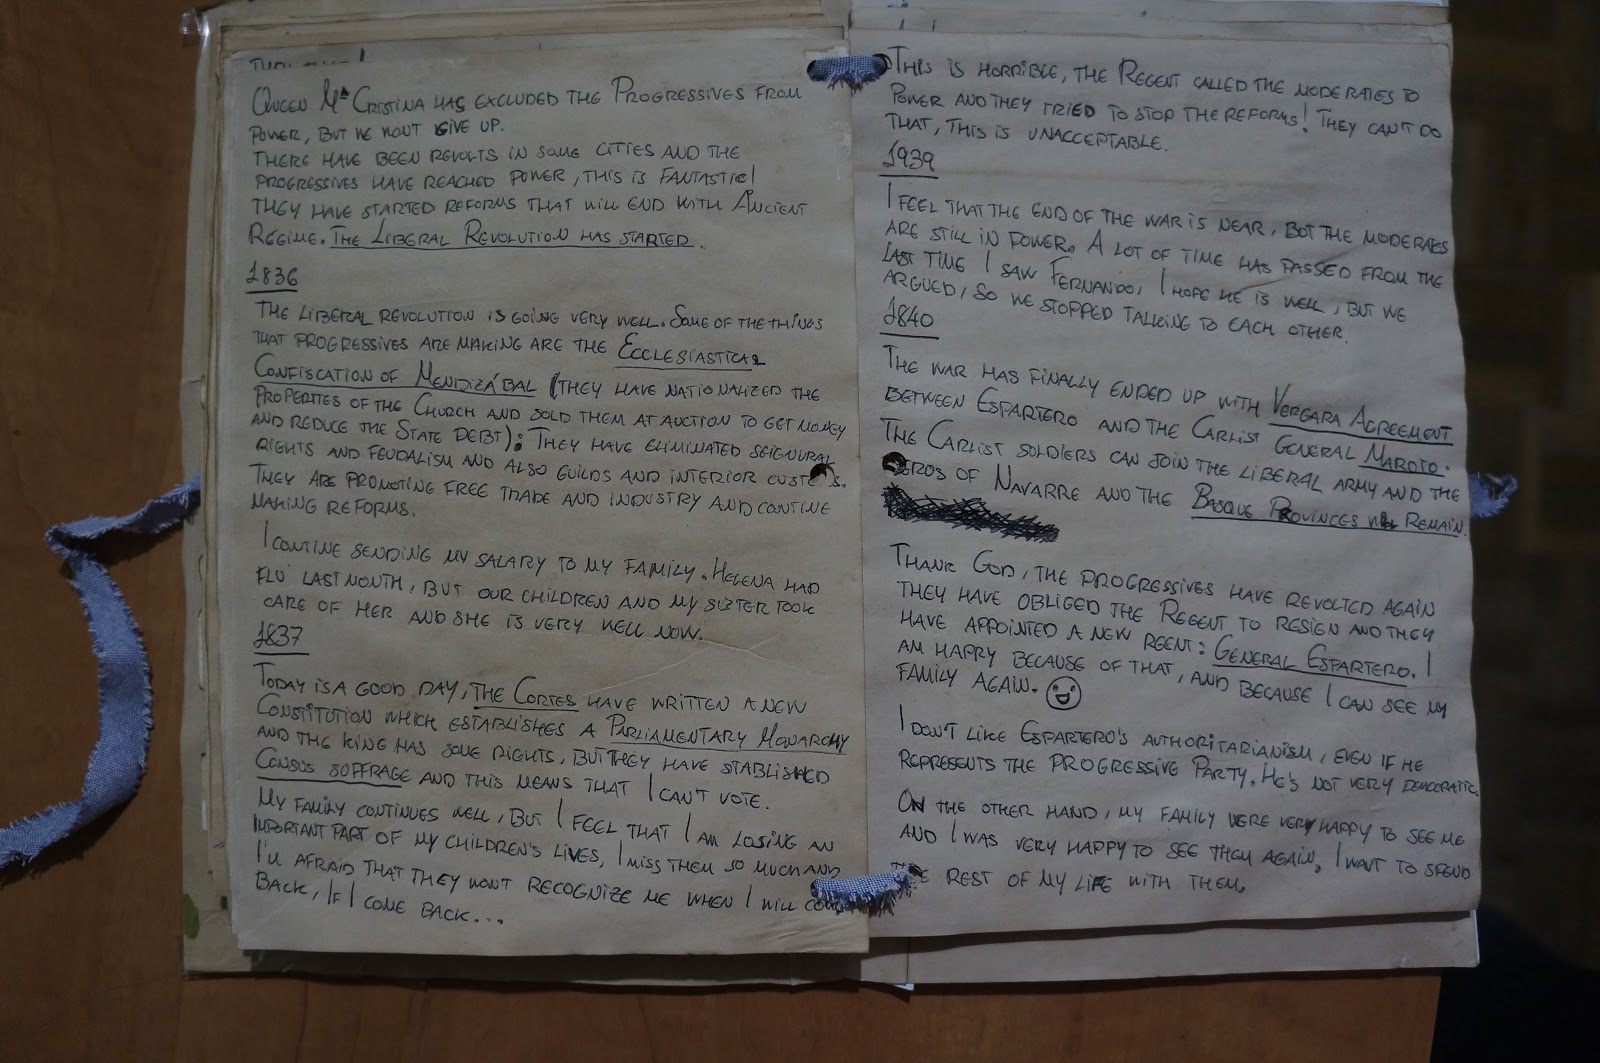 Queen Mª Cristina has excluded the Progressives from
power, but we wont give up.
There have been revolts in some cities and the
progressives have reached power, this is fantastic!
They have started reforms that will end with Ancient
Regime. The Liberal Revolution has started.
1836
The liberal revolution is going very well. Some of the things
that progressives are making are the Ecclesiastical
Confiscation of Mendizábal (they have nationalized the
properties of the Church and sold them at auction to get money
and reduce the State debt); They have eliminated seigniural
rights and feudalism and also guilds and interior
They are promoting free trade and industry and contine
making reforms.
I contine sending my salary to my family. Helena had
flu last month, but our children and my sister took
care of her and she is very well now.
1837
Today is a good day, the Cortes have written a new
Constitution which establishes a Parliamentary Monarchy
and the king has some rights, but they have stablished
Census suffrage and this means that I can't vote.
My family continues well, but I feel that I am losing an
important part of my children's lives, I miss them so much and
I'm afraid that they wont recognize me when I will
back, if I come back...
This is horrible, the Regent called the moderates to
power and they tried to stop the reforms! They can't do
that, this is unacceptable.
1939
I feel that the end of the war is near, but the moderates
are still in power. A lot of time has passed from the
last time I saw Fernando, I hope he is well, but we
argued, so we stopped talking to each other.
1840
The war has finally ended up with Vergara Agreement
between Espartero and the Carlist General Maroto.
The Carlist soldiers can join the liberal army and the
of Navarre and the Basque Provinces will remain.
Thank God, the progressives have revolted again
they have obliged the Regent to resign and they
have appointed a new regent: General Espartero. I
am happy because of that, and because I can see my
family again.
I don't like Espartero's authoritarianism, even if he
represents the Progressive Party. He's not very democratic.
On the other hand, my family were very happy to see me
and I was very happy to see them again, I want to spend
rest of my life with them.